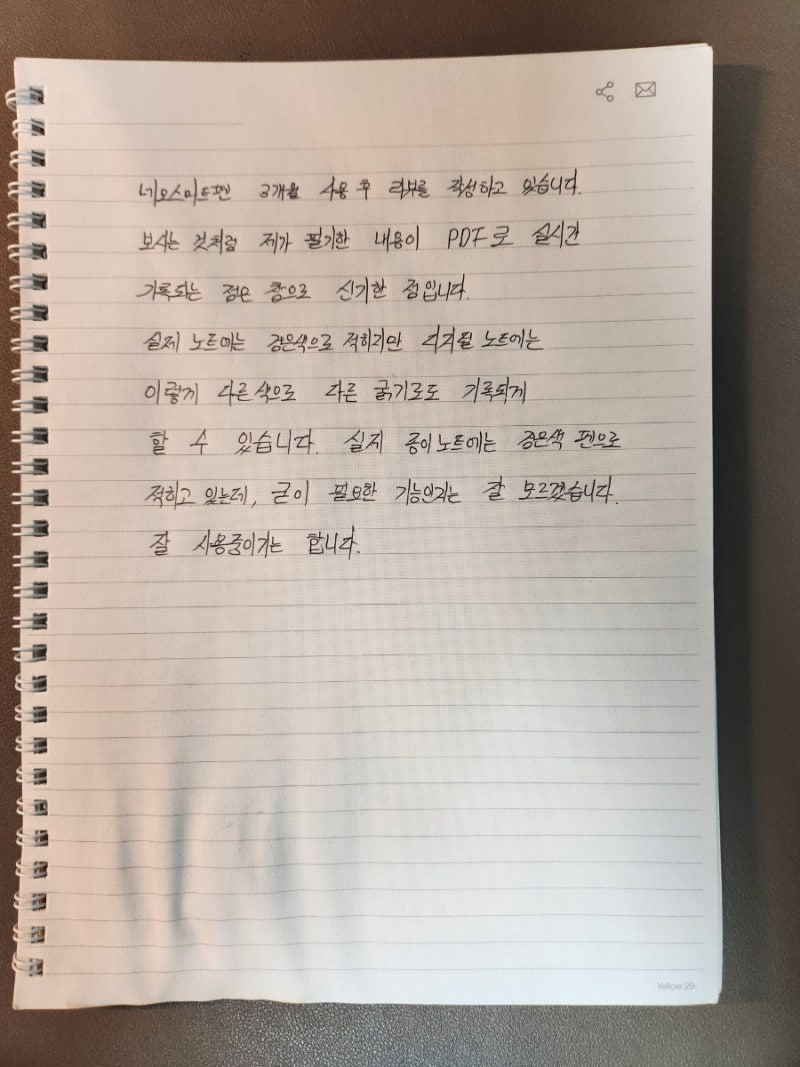 네오스마트펜 3개월 사용 후 리뷰를 작성하고 있습니다.
보시는 것처럼 제가 필기한 내용이 PDF로 실시간
기록되는 점은 참으로 신기한 점입니다.
실제 노트에는 검은색으로 적히지만 디지털 노트에는
이렇게 다른색으로 다른 굵기로도 기록되게
할 수 있습니다. 실제 종이노트에는 검은색 펜으로
적히고 있는데, 굳이 필요한 기능인지는 잘 모르겠습니다.
잘 사용중이기는 합니다.
Yellow 29.